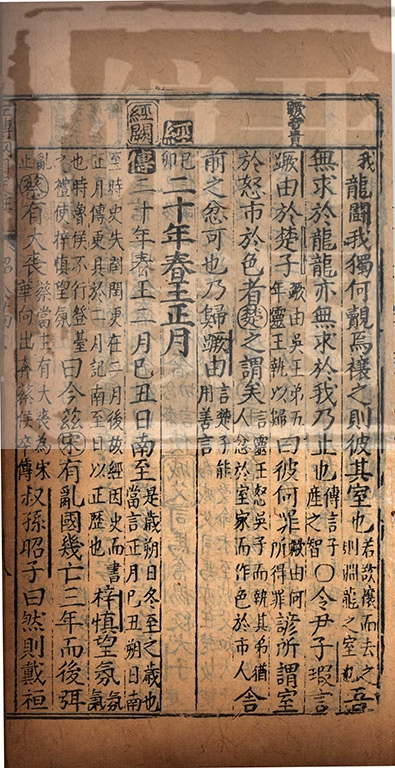 蹶音貴
我龍鬭我獨何覿焉禳之則彼其室也若欲禳而去之則淵龍之室也吾
無求於龍龍亦無求於我乃止也傳言子產之智○令尹子瑕言
蹶由於楚子蹶由吳王弟五年靈王執以歸曰彼何罪蹶由何所得罪諺所謂室
於怒市於色者楚之謂矣言靈王怒吳子而執其弟猶人忿於室家而作色於市人舍
前之忿可也乃歸蹶由言楚子能用善言
經己卯二十年春王正月
經闕傳二十年春王二月己丑日南至是歲朔旦冬至之歲也當言正月己丑朔日南
至時史失閏閏更在二月後故經因史而書正月傳更具於二月記南至日以正歷也梓慎望氛氛氣
也時魯侯不行登臺之禮使梓慎望氣曰今茲宋有亂國幾亡三年而後弭
止蔡有大喪蔡當大喪為宋亂華向出奔蔡侯卒傳叔孫昭子曰然則戴桓